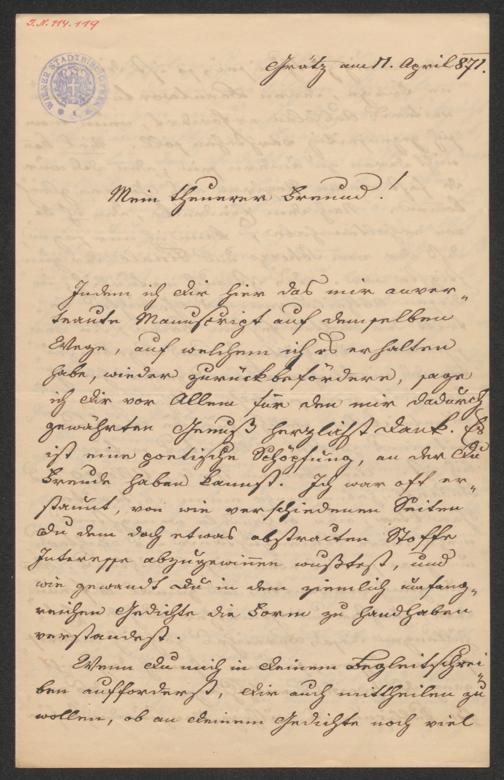 I.N. 114.119
WIENER STADTBIBLIOTHEK
Grätz am 11. April 871.
Mein theuerer Freund!
Indem ich Dir hier das mir anver-
traute Manuscript auf demselben
Wege, auf welchem ich es erhalten
habe, wieder zurückbefördere, sage
ich Dir vor Allem für den mir dadurch
gewährten Genuß herzlichst Dank. Es
ist eine poetische Schöpfung, an der Du
Freude haben kannst. Ich war oft er-
staunt, von wie verschiedenen Seiten
Du dem doch etwas abstracten Stoffe
Interesse abzugewinnen wußtest, und
wie gewandt Du in dem ziemlich umfang-
reichen Gedichte die Form zu handhaben
verstandest.
Wenn Du mich in Deinem Begleitschrei-
ben aufforderst, Dir auch mittheilen zu
wollen, ob an Deinem Gedichte noch viel